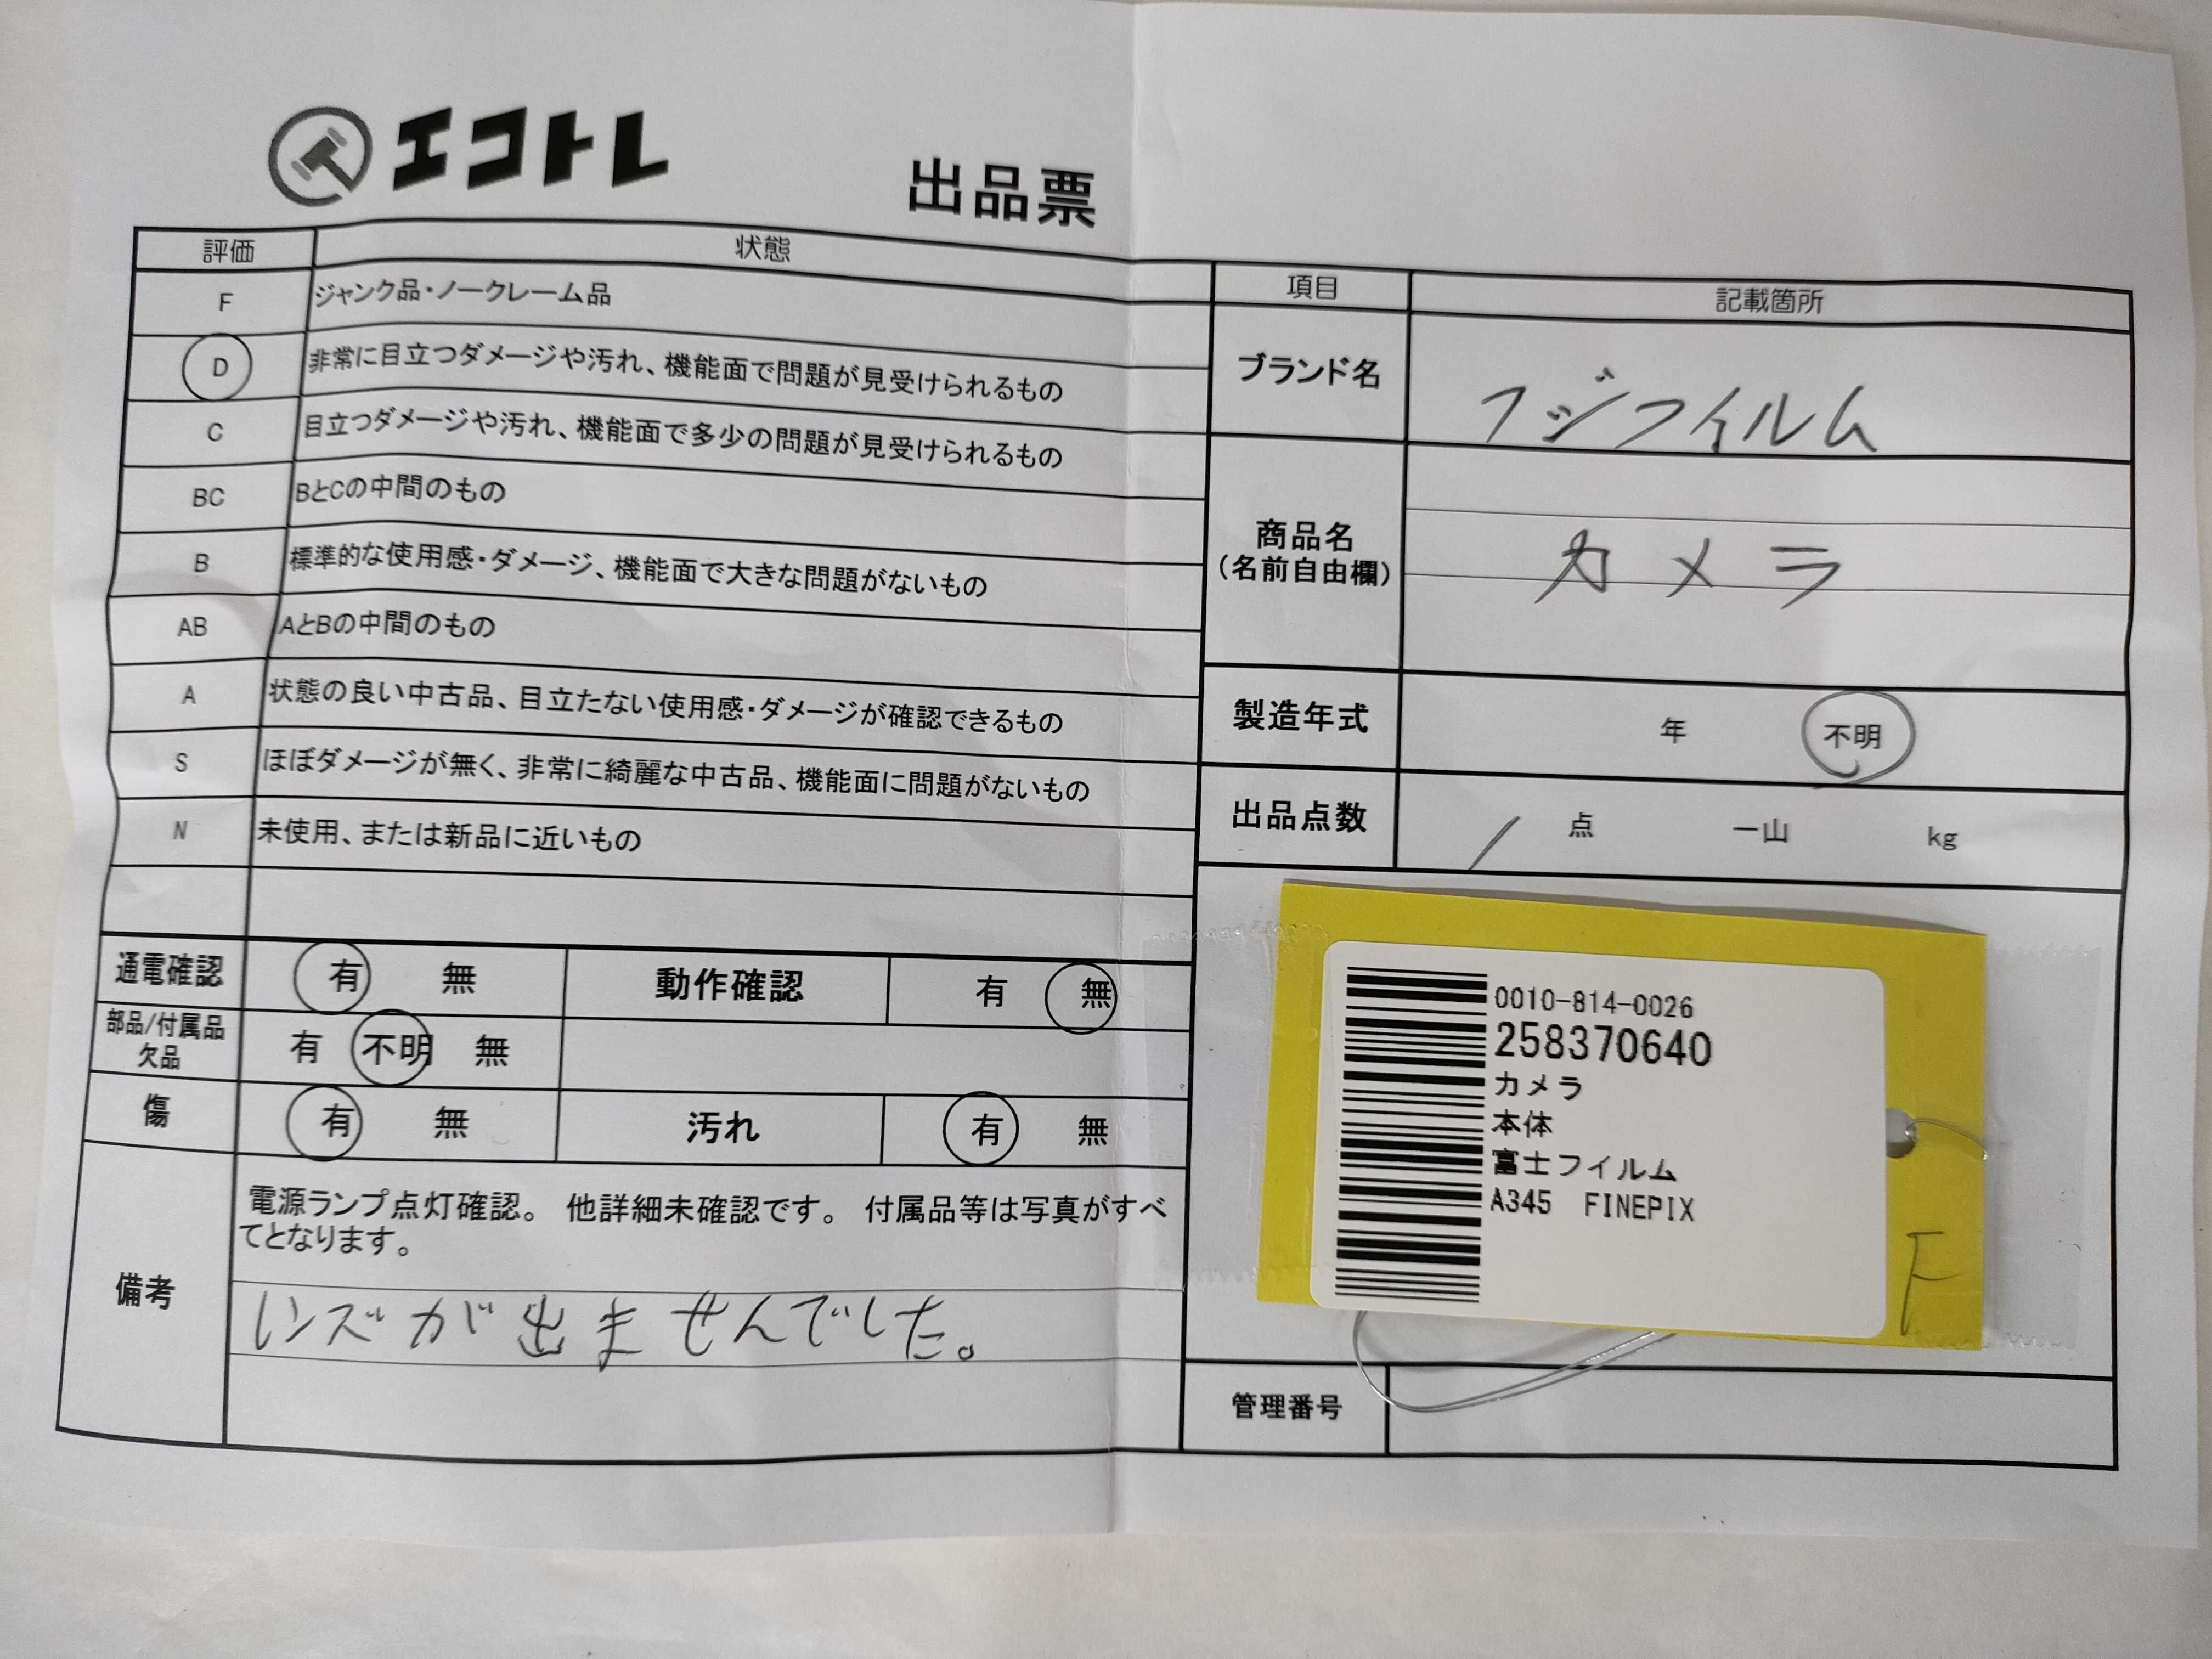 エコトレ
出品票
評価 状態
F ジャンク品・ノークレーム品
D 非常に目立つダメージや汚れ、機能面で問題が見受けられるもの
C 目立つダメージや汚れ、機能面で多少の問題が見受けられるもの
BC BとCの中間のもの
B 標準的な使用感・ダメージ、機能面で大きな問題がないもの
AB AとBの中間のもの
A 状態の良い中古品、目立たない使用感・ダメージが確認できるもの
S ほぼダメージが無く、非常に綺麗な中古品、機能面に問題がないもの
N 未使用、または新品に近いもの
通電確認 有 無 動作確認 有 無
部品/付属品
欠品 有 不明 無
傷 有 無 汚れ 有 無
備考
電源ランプ点灯確認。 他詳細未確認です。 付属品等は写真がすべ
てとなります。
レンズが出ませんでした。
項目 記載箇所
ブランド名 フジフイルム
商品名
(名前自由欄) カメラ
製造年式 年 不明
出品点数 1 点 一山 kg
0010-814-0026
258370640
カメラ
本体
富士フイルム
A345 FINEPIX
F
管理番号